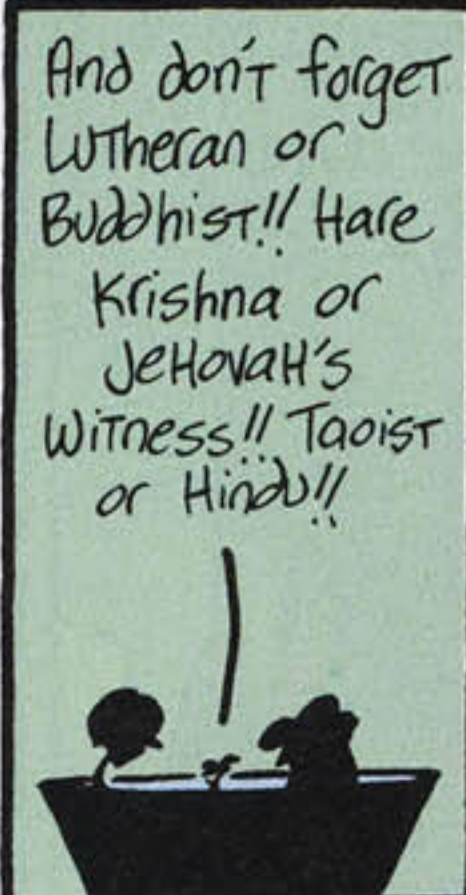 And don't forget
Lutheran or
Buddhist!! Hare
Krishna or
JeHovaH's
Witness!! Taoist
or Hindu!!